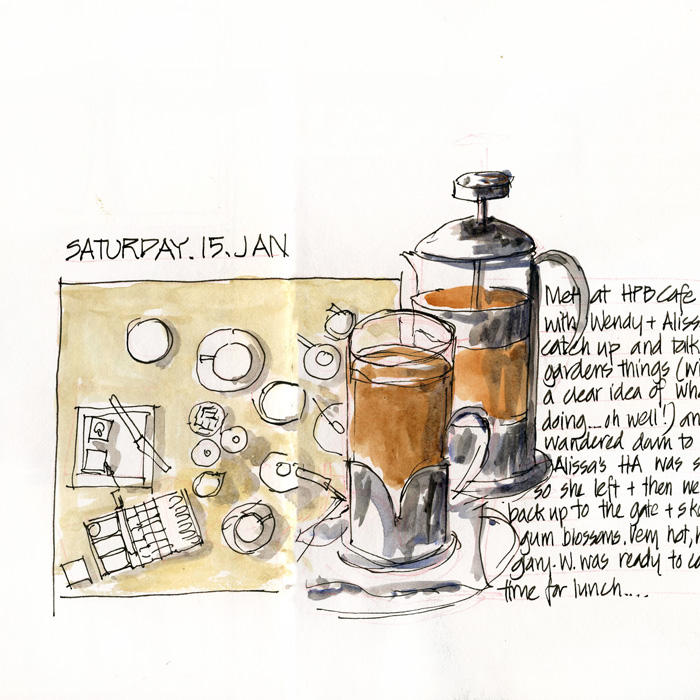 SATURDAY. 15. JAN
Met at HPB Cafe
with Wendy + Aliss
catch up and talk
gardens things (wi
a clear idea of wh
doing....oh well!) an
wandered down to
Alissa's HA was s
so she left + then we
back up to the gate + sk
gum blossoms. Very hot, h
gary. W. was ready to co
time for lunch....